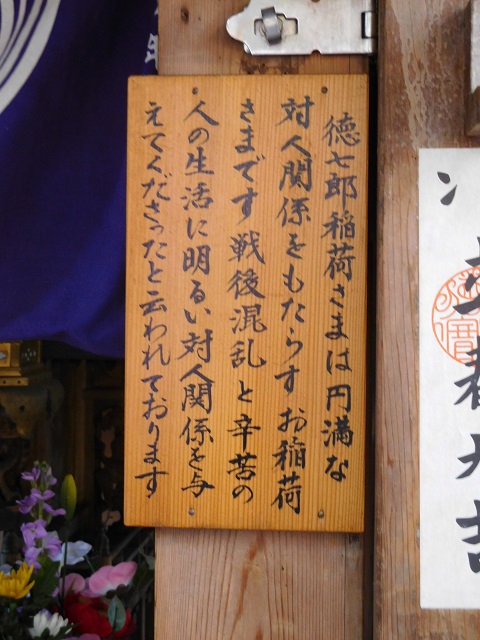 徳七郎稲荷さまは円満な
対人関係をもたらすお稲荷
さまです戦後混乱と辛苦の
人の生活に明るい対人関係を与
えてくださったと云われております